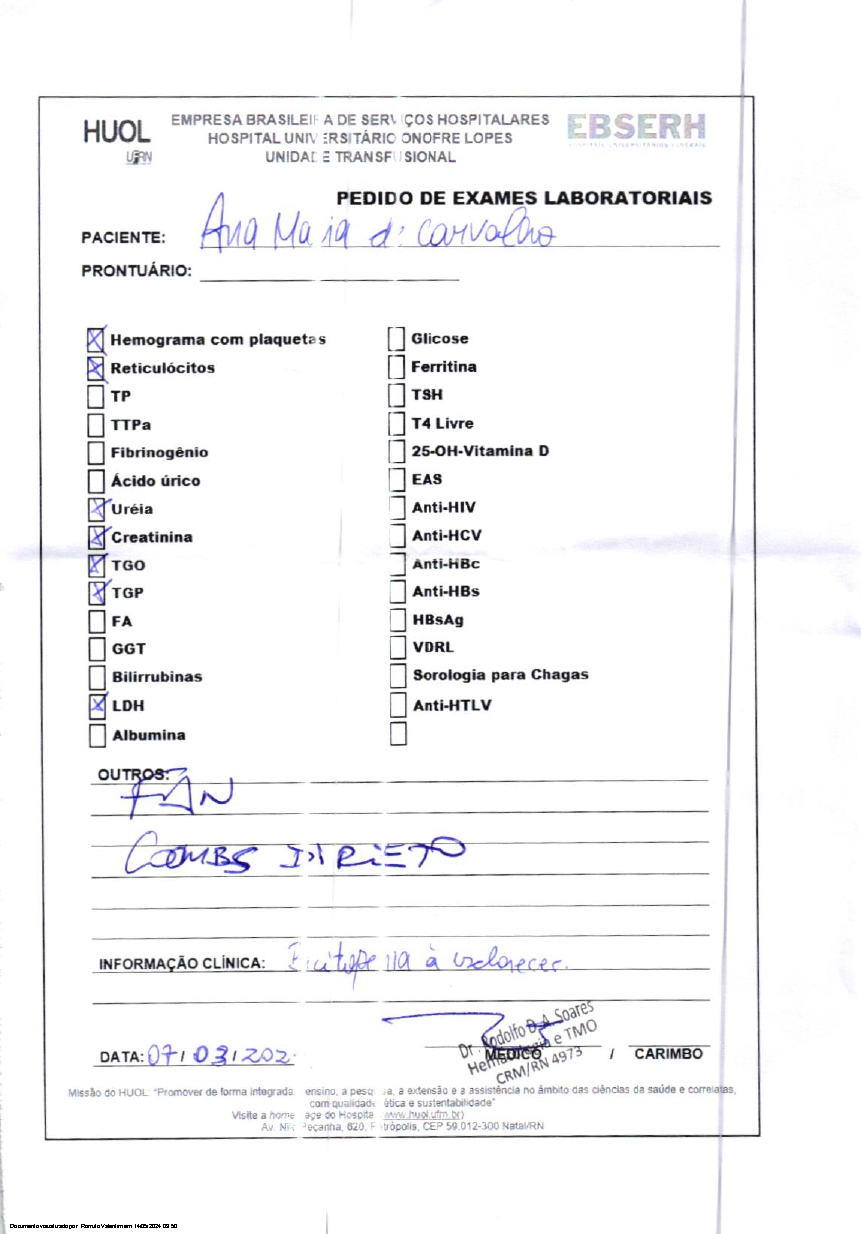 HUOL
UFRN
EMPRESA BRASILEIRA DE SERVIÇOS HOSPITALARES
HOSPITAL UNIVERSITÁRIO ONOFRE LOPES
UNIDADE TRANSFUSIONAL
EBSERH
HOSPITAIS UNIVERSITÁRIOS FEDERAIS
PEDIDO DE EXAMES LABORATORIAIS
PACIENTE: Ana Maria de Carvalho
PRONTUÁRIO:
Hemograma com plaquetas
Reticulócitos
TP
TTPa
Fibrinogênio
Ácido úrico
Uréia
Creatinina
TGO
TGP
FA
GGT
Bilirrubinas
LDH
Albumina
Glicose
Ferritina
TSH
T4 Livre
25-OH-Vitamina D
EAS
Anti-HIV
Anti-HCV
Anti-HBc
Anti-HBs
HBsAg
VDRL
Sorologia para Chagas
Anti-HTLV
OUTROS:
FAN
COOMBS DIRETO
INFORMAÇÃO CLÍNICA: à esclarecer.
DATA: 07/03/202
MÉDICO / CARIMBO
Dr. Rodolfo D. A. Soares
Hematologia e TMO
CRM/RN 4973
Missão do HUOL: "Promover de forma integrada ensino, a pesquisa, a extensão e a assistência no âmbito das ciências da saúde e correlatas,
com qualidade ética e sustentabilidade"
Visite a home page do Hospital (www.huol.ufrn.br)
Av. Nilo Peçanha, 620, Petrópolis, CEP 59.012-300 Natal/RN
Documento visualizado por Romulo Valentim em 14/05/2024 09:50